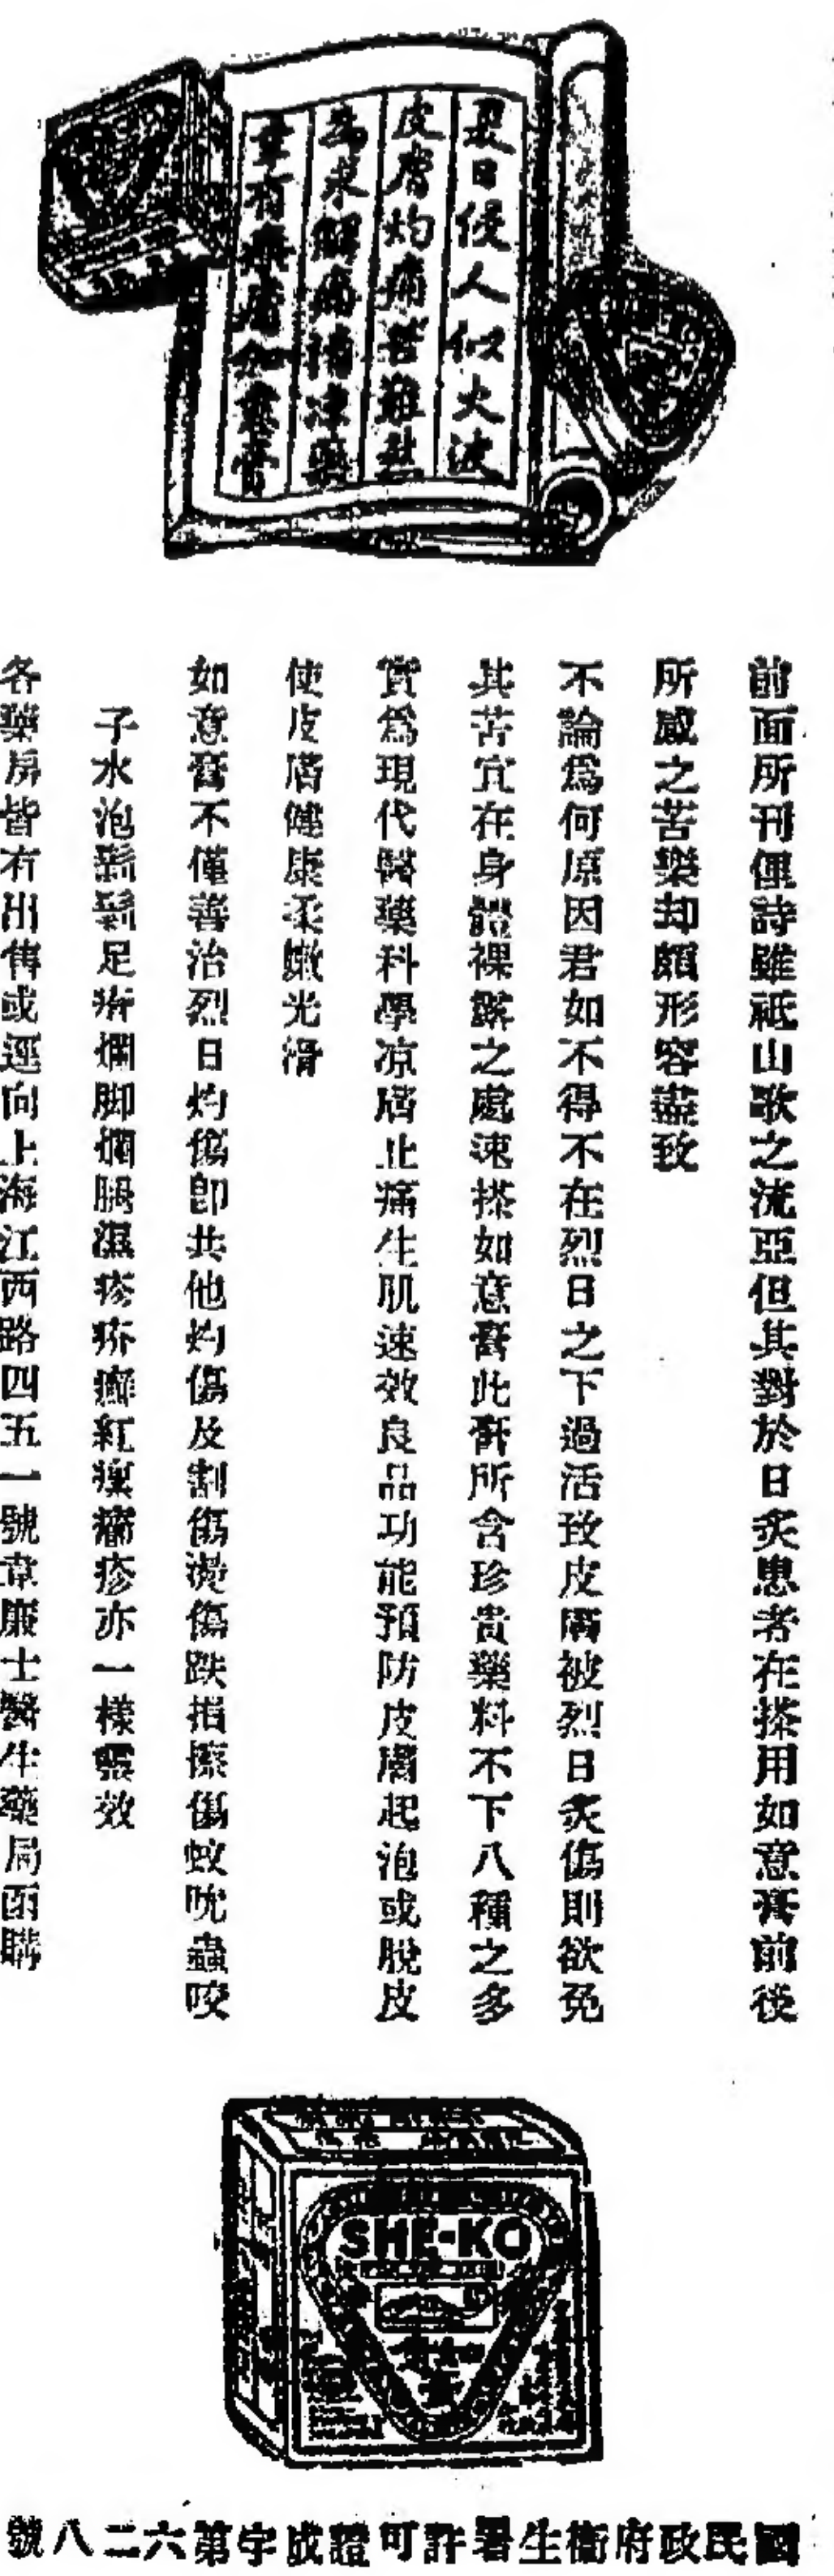 夏日侵人似火波
皮膚灼痛苦難熬
為求解痛清凉藥
幸有無膚如意膏
前面所刊俚詩雖祇山歌之流亞但其對於日炙患者在搽用如意膏前後
所感之苦樂却頗形容盡致
不論爲何原因君如不得不在烈日之下過活致皮膚被烈日炙傷則欲免
其苦宜在身體裸露之處速搽如意膏此膏所含珍貴藥料不下八種之多
實爲現代醫藥科學凉膚止痛生肌速效良品功能預防皮膚起泡或脫皮
使皮膚健康柔嫩光滑
如意膏不僅善治烈日灼傷卽其他灼傷及割傷燙傷跌損擦傷蚊吮蟲咬
子水泡鬍鬚足疥爛脚爛腿濕疹疥癬紅瘰疹亦一樣靈效
各藥房皆有出售或逕向上海江西路四五一號韋廉士醫生藥局函購
SHE-KO
如意膏
國民政府衞生署許可證成字第六二八號